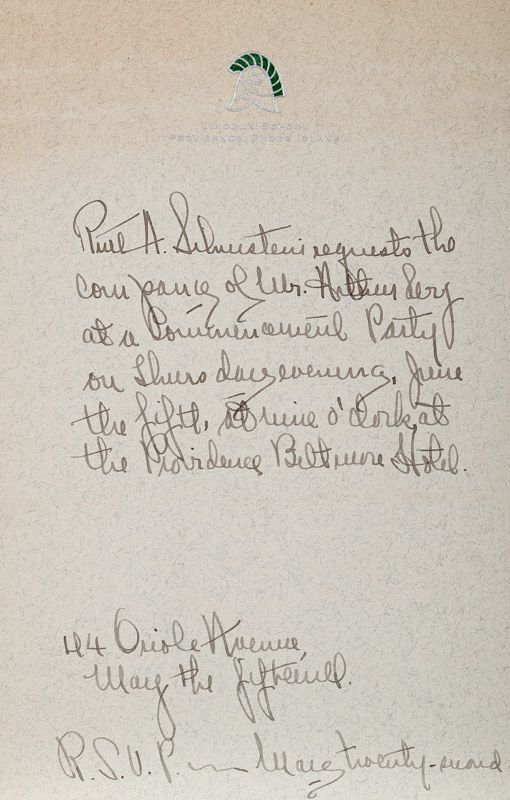 LINCOLN SCHOOL
PROVIDENCE, RHODE ISLAND
Ruth A. Silverstein requests the
company of Mr. Arthur Levy
at a Commencement Party
on Thursday evening, June
the fifth, at nine o'clock, at
the Providence Biltmore Hotel.
44 Oriole Avenue,
May the fifteenth.
R.S.V.P. — May twenty-second